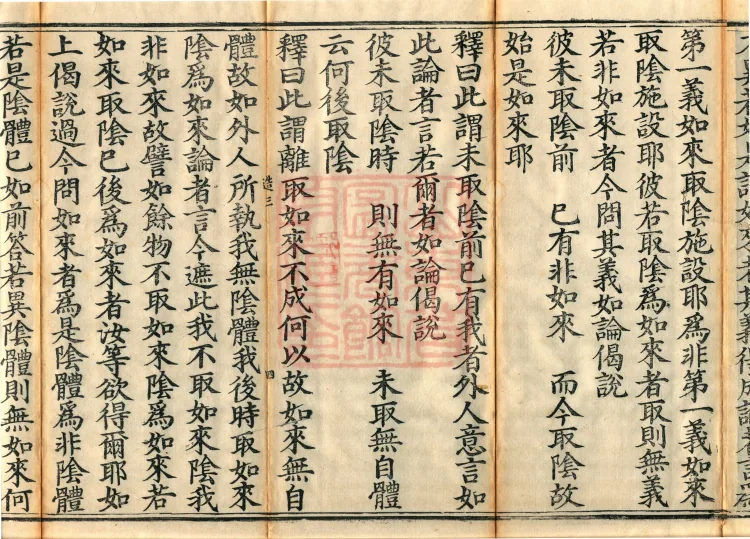 第一義如來取陰施設耶爲非第一義如來
取陰施設耶彼若取陰爲如來者取則無義
若非如來者今問其義如論偈說
彼未取陰前　已有非如來　而今取陰故
始是如來耶
釋曰此謂未取陰前已有我者外人意言如
此論者言若爾者如論偈說
彼未取陰時　則無有如來　未取無自體
云何後取陰
釋曰此謂離取如來不成何以故如來無自
造三　四
體故如外人所執我無陰體我後時取如來
陰爲如來論者言今遮此我不取如來陰我
非如來故譬如餘物不取如來陰爲如來若
如來取陰已後爲如來者汝等欲得爾耶如
上偈說過今問如來者爲是陰體爲非陰體
若是陰體已如前答若異陰體則無如來何